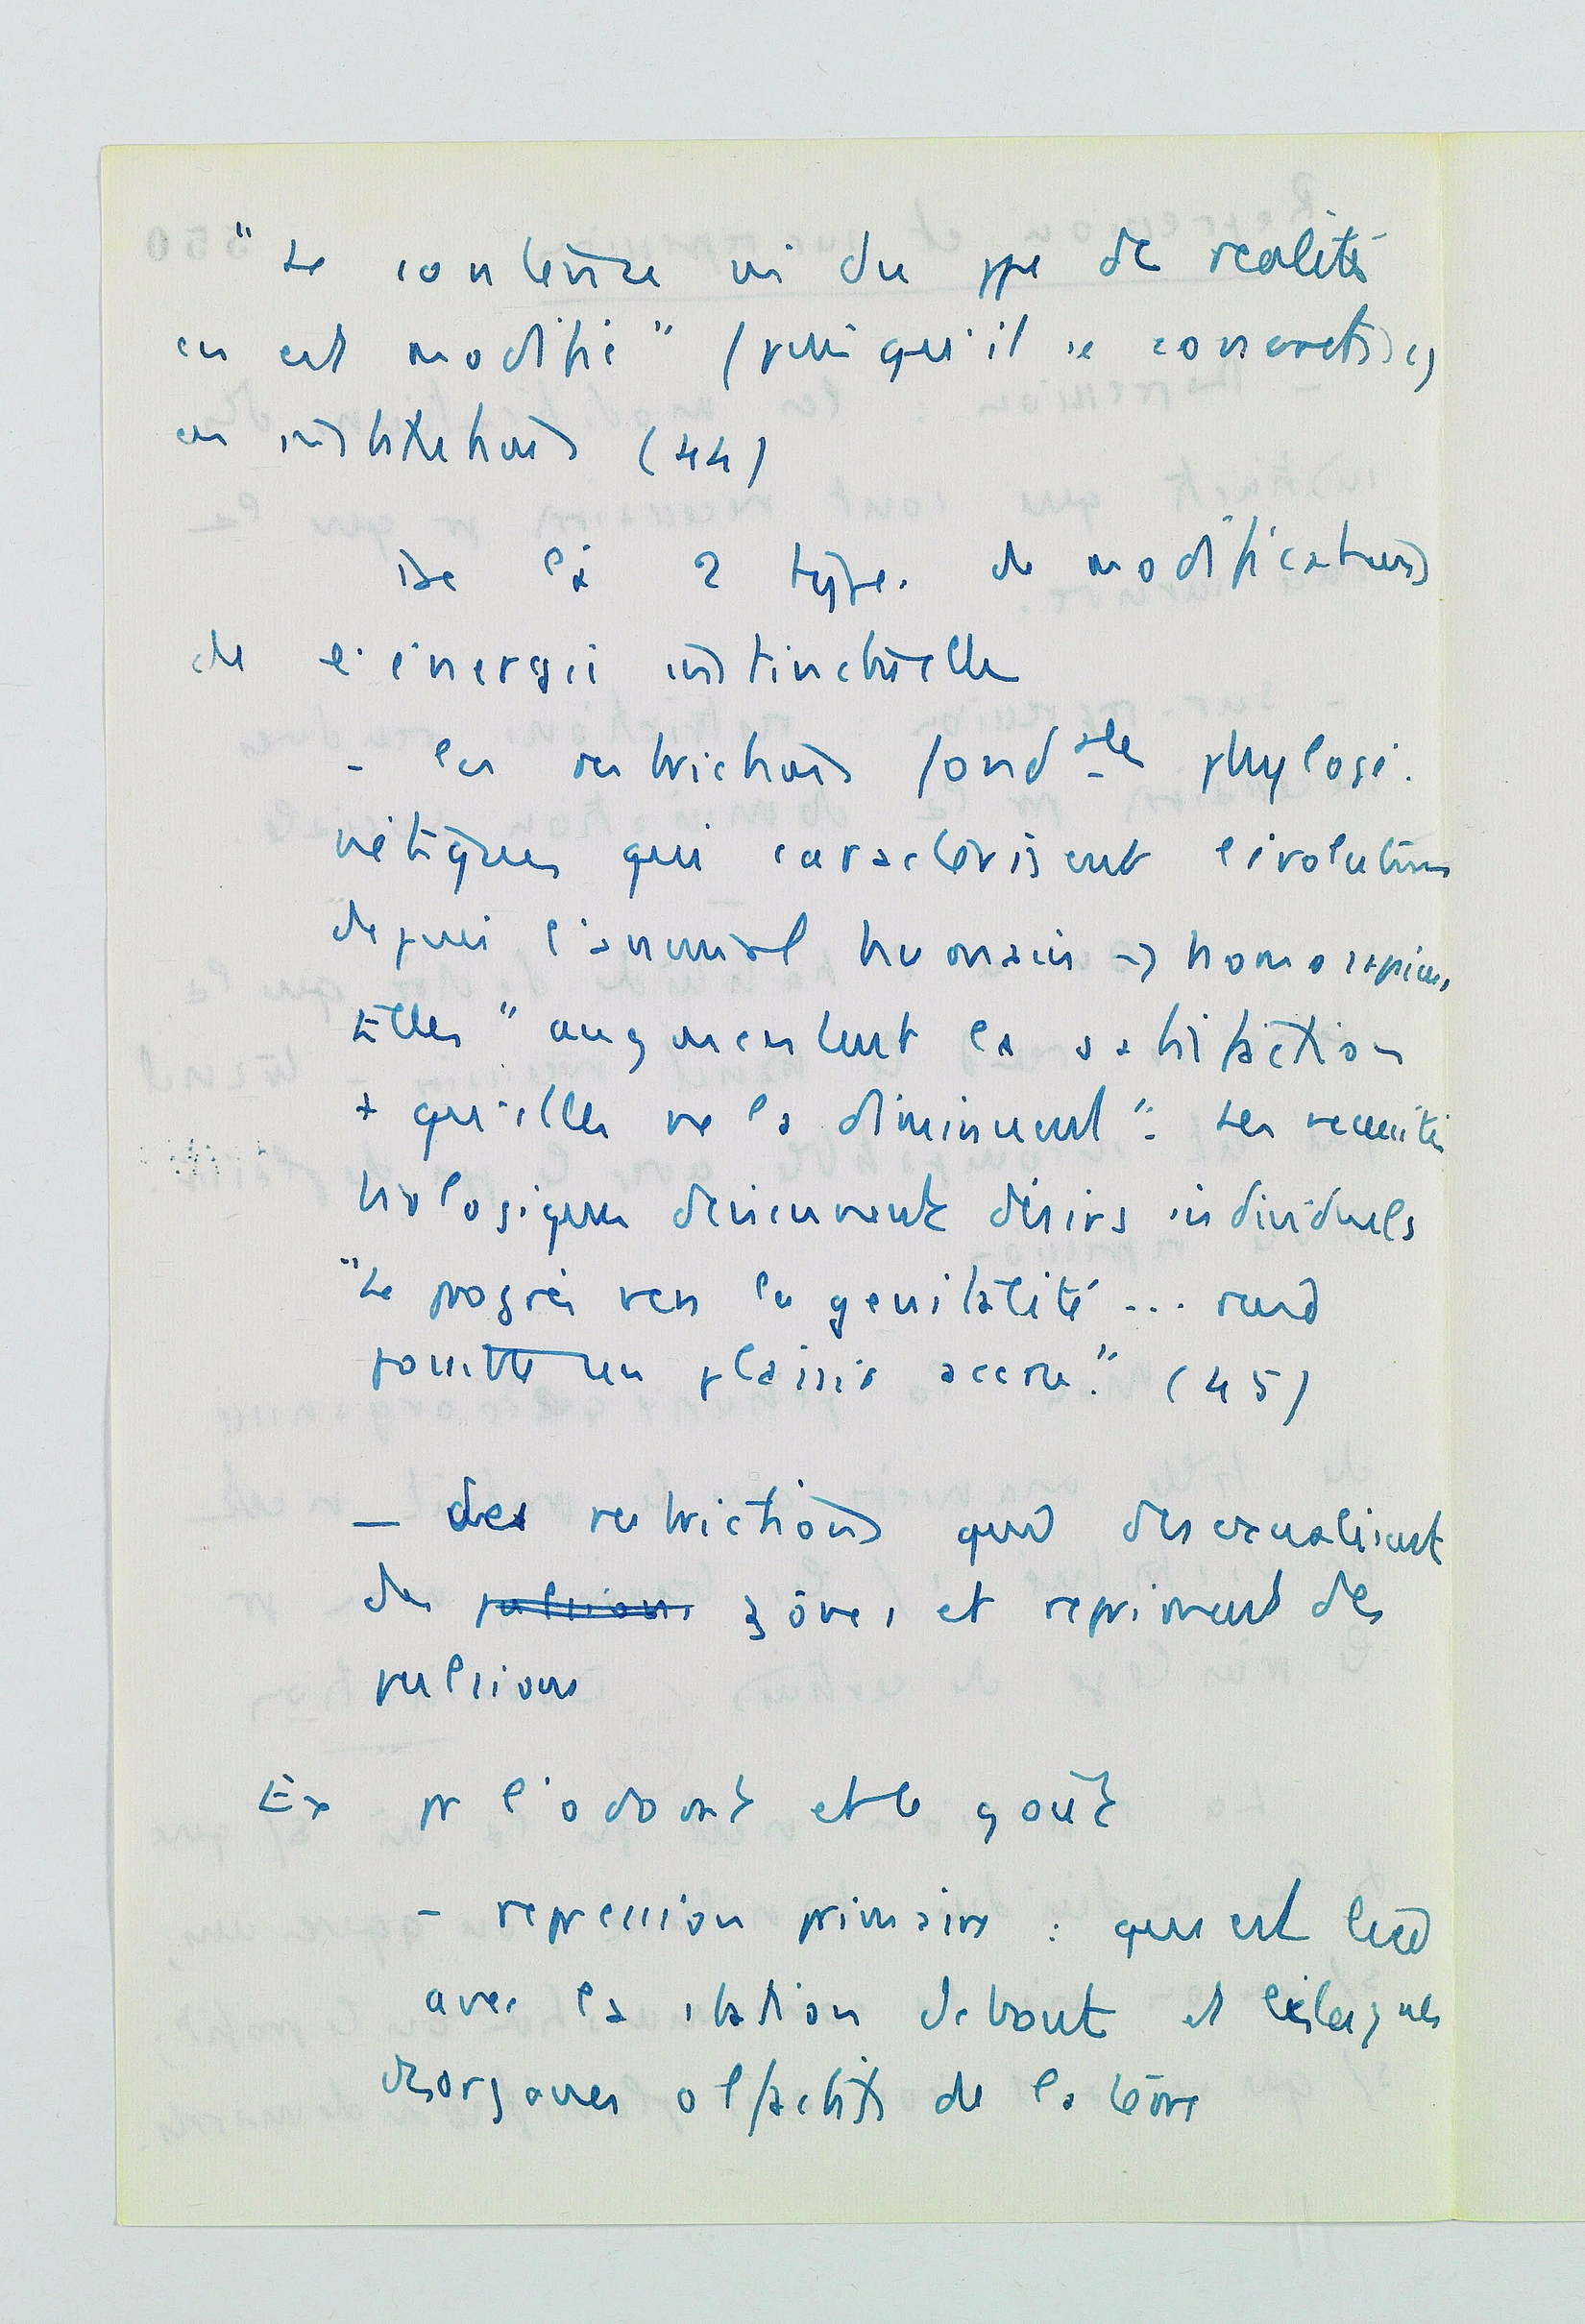 "Le contenu m du ppe de realité
en est modifié" (puisqu'il se concrétise)
en institutions (44)
De là 2 types de modifications
de l'énergie instinctuelle
- les restrictions fond ales phylogé-
nétiques qui caractérisent l'évolution
depuis l'animal humain → homo sapiens,
Elles "augmentent la satisfaction
+ qu'elles ne la diminuent": Les necessités
biologiques deviennent désirs individuels
"Le progrès vers la genitalité ... rend
possible un plaisir accru." (45)
— des restrictions qui desexualisent
des pulsions zones et repriment des
pulsions
Ex pr l'odorat et le goût
- repression primaire : qui est liée
avec la station debout et
des organes olfactifs de la terre